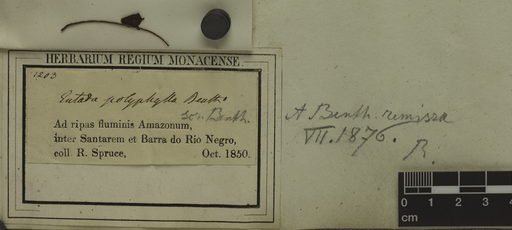 HERBARIUM REGIUM MONACENSE.
1203
Entada polyphylla Benth.
Benth.
Ad ripas fluminis Amazonum,
inter Santarem et Barra do Rio Negro,
coll. R. Spruce, Oct. 1850.
A Benth. remissa
VII. 1876.
R.
0 1
cm